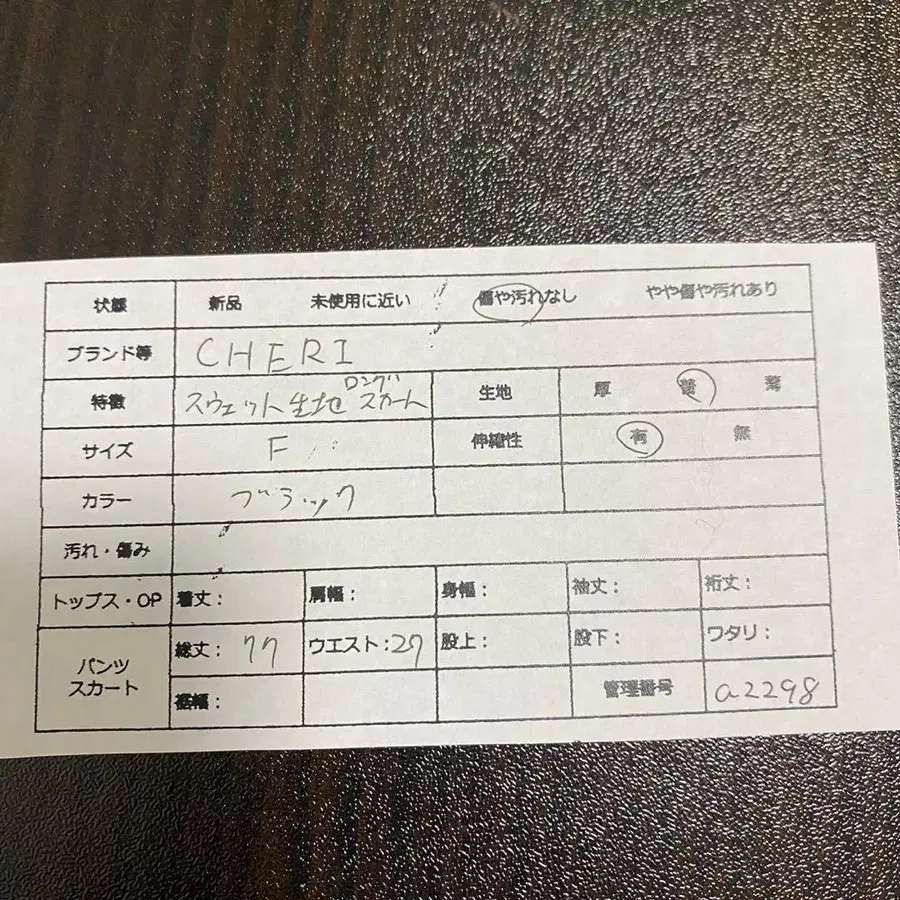 状態 新品 未使用に近い 傷や汚れなし やや傷や汚れあり
ブランド等 CHERI
特徴 スウェット生地 ロング スカート 生地 厚 普 薄
サイズ F 伸縮性 有 無
カラー ブラック
汚れ・傷み
トップス・OP 着丈: 肩幅: 身幅: 袖丈: 裄丈:
パンツ スカート 総丈: 77 ウエスト:27 股上: 股下: ワタリ:
裾幅: 管理番号 a2298